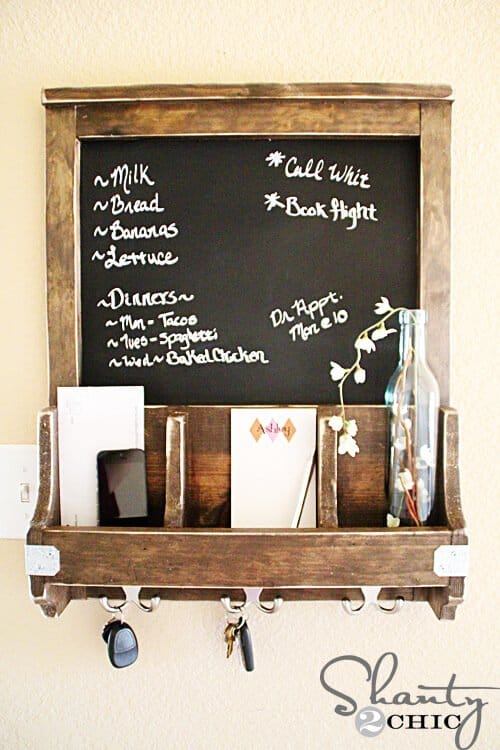 ~Milk
~Bread
~Bananas
~Lettuce
~Dinners~
~Mon = Tacos
~Tues = Spaghetti
~Wed ~ Baked Chicken
*Call Whit
*Book flight
Dr. Appt.
Mon @ 10
Ashley
Shanty
2 CHIC